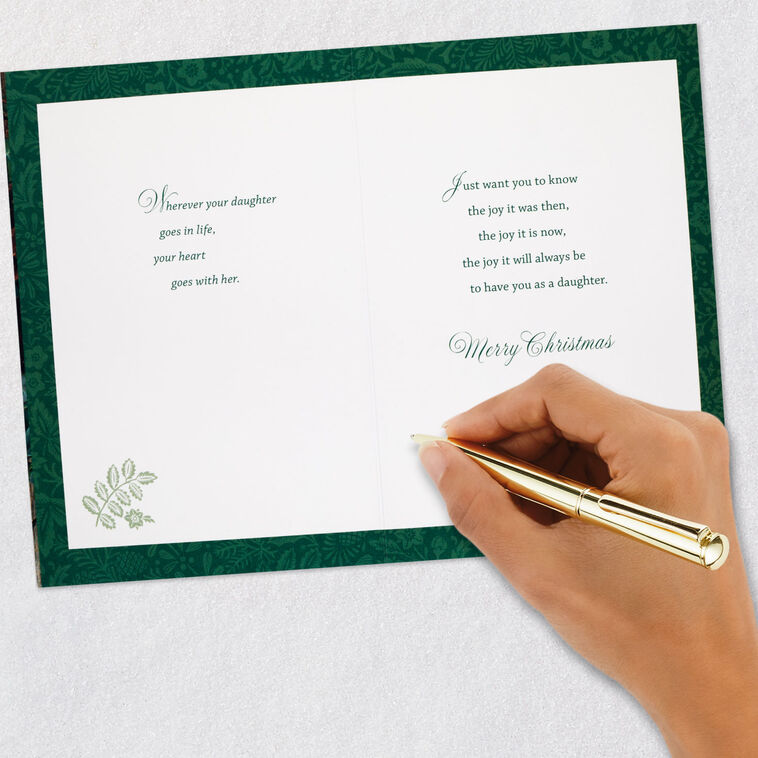 Wherever your daughter
goes in life,
your heart
goes with her.
Just want you to know
the joy it was then,
the joy it is now,
the joy it will always be
to have you as a daughter.
Merry Christmas